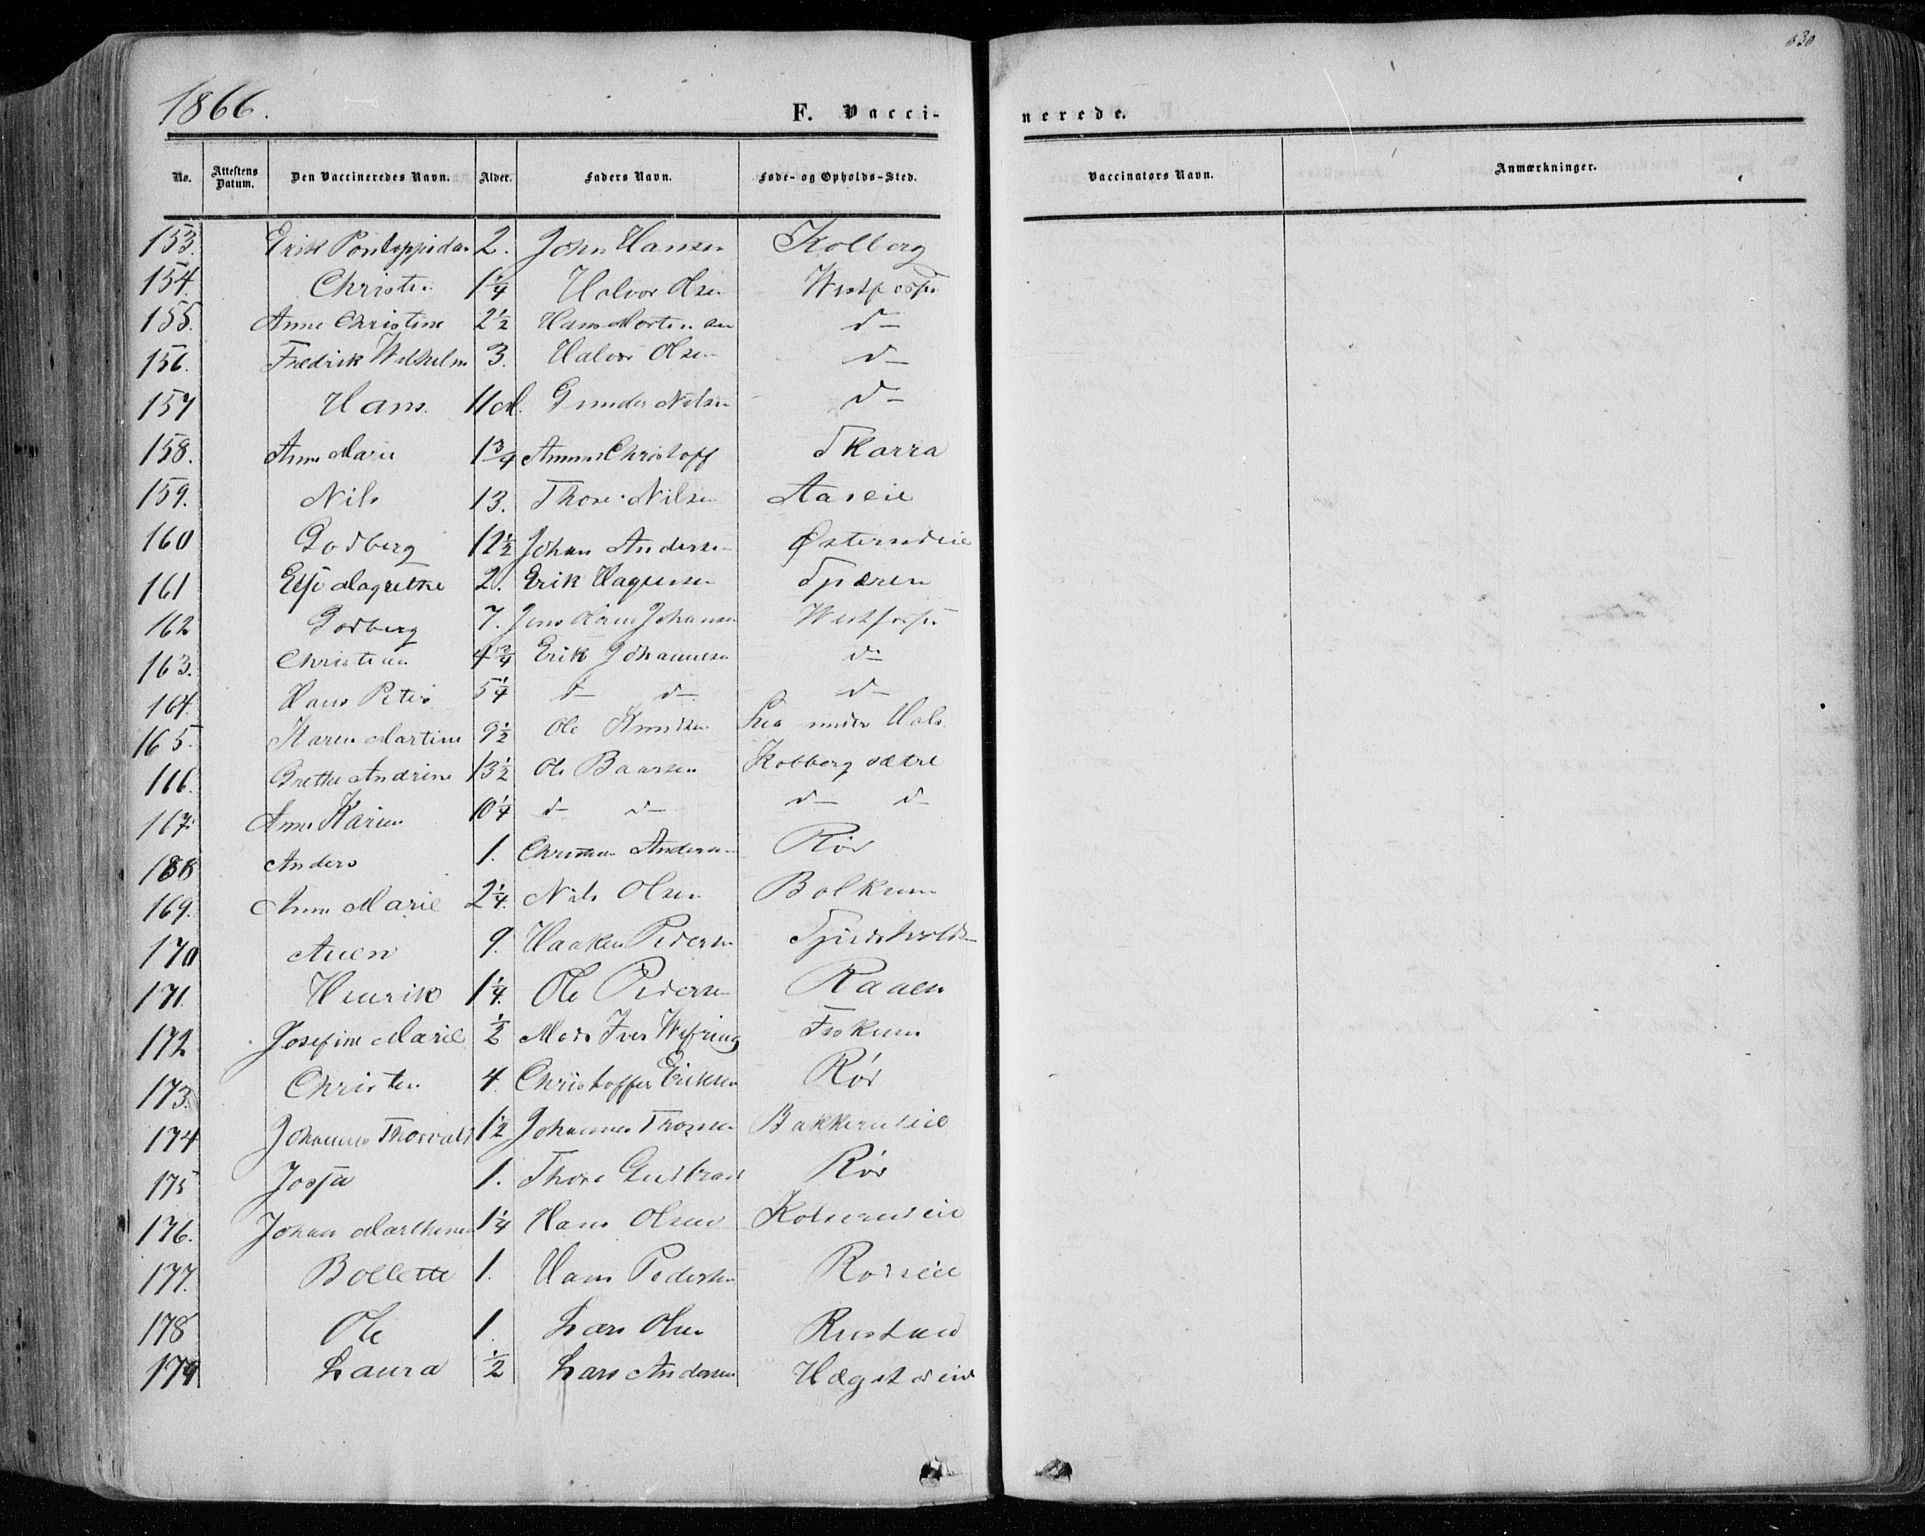 630
1866.
F. Vacci-
nerede.
No. Attestens Datum. Den Vaccineredes Navn. Alder. Faders Navn. Føde- og Opholds-Sted. Vaccinators Navn. Anmærkninger.
153. Erik Pontoppidan 2. John Hansen Kolberg
154. Christen 1 1/4 Halvor Olsen
155. Anne Christine 2 1/2 Hans Mortensen d—
156. Fredrik Wilhelm 3. Halvor Olsen d—
157 Hans. 11 M. Gunder Nilsen d—
158. Anne Marie 1 3/4 Amund Christoff Skarra
159. Nils 13. Thore Nilsen Aaseie
160 Godberg 12 1/2 Johan Andersen Østerudeie
161 Else Magrethe 2. Erik Hagensen Spæren
162 Godberg 7. Jens Johansen
163. Christian 4 3/4 Erik Johannesen d—
164. Hans Peter 5 1/4 d— d— d—
165. Karen Martine 9 1/2 Ole Knudsen under Hals
166. Grethe Andrine 13 1/2 Ole Baarsen Kolberg sætre
167. Anne Karine 10 1/4 d— d— d— d—
168 Anders 1. Christian Andersen Rör
169. Anne Marie 2 1/4. Nils Olsen Bolkum
170 Auen 9. Haaken Pedersen
171. Henrik 1 1/4. Ole Pedersen Raaen
172. Josefine Marie 1/2 Mads Iver Wefring Frokum
173. Christen 4. Christoffer Eriksen Rör
174 Johannes Thorvald 1 1/2 Johannes Tromsen Bakkerudeie
175 Josja 1. Thore Gudbrand Rör
176. Johan Marthinus 1 1/4 Hans Olsen Kolserudeie
177. Bollette 1. Hans Pedersen Rörseie
178 Ole 1. Lars Olsen Rustad
179 Laura 1/2 Lars Andersen Hægstadeie